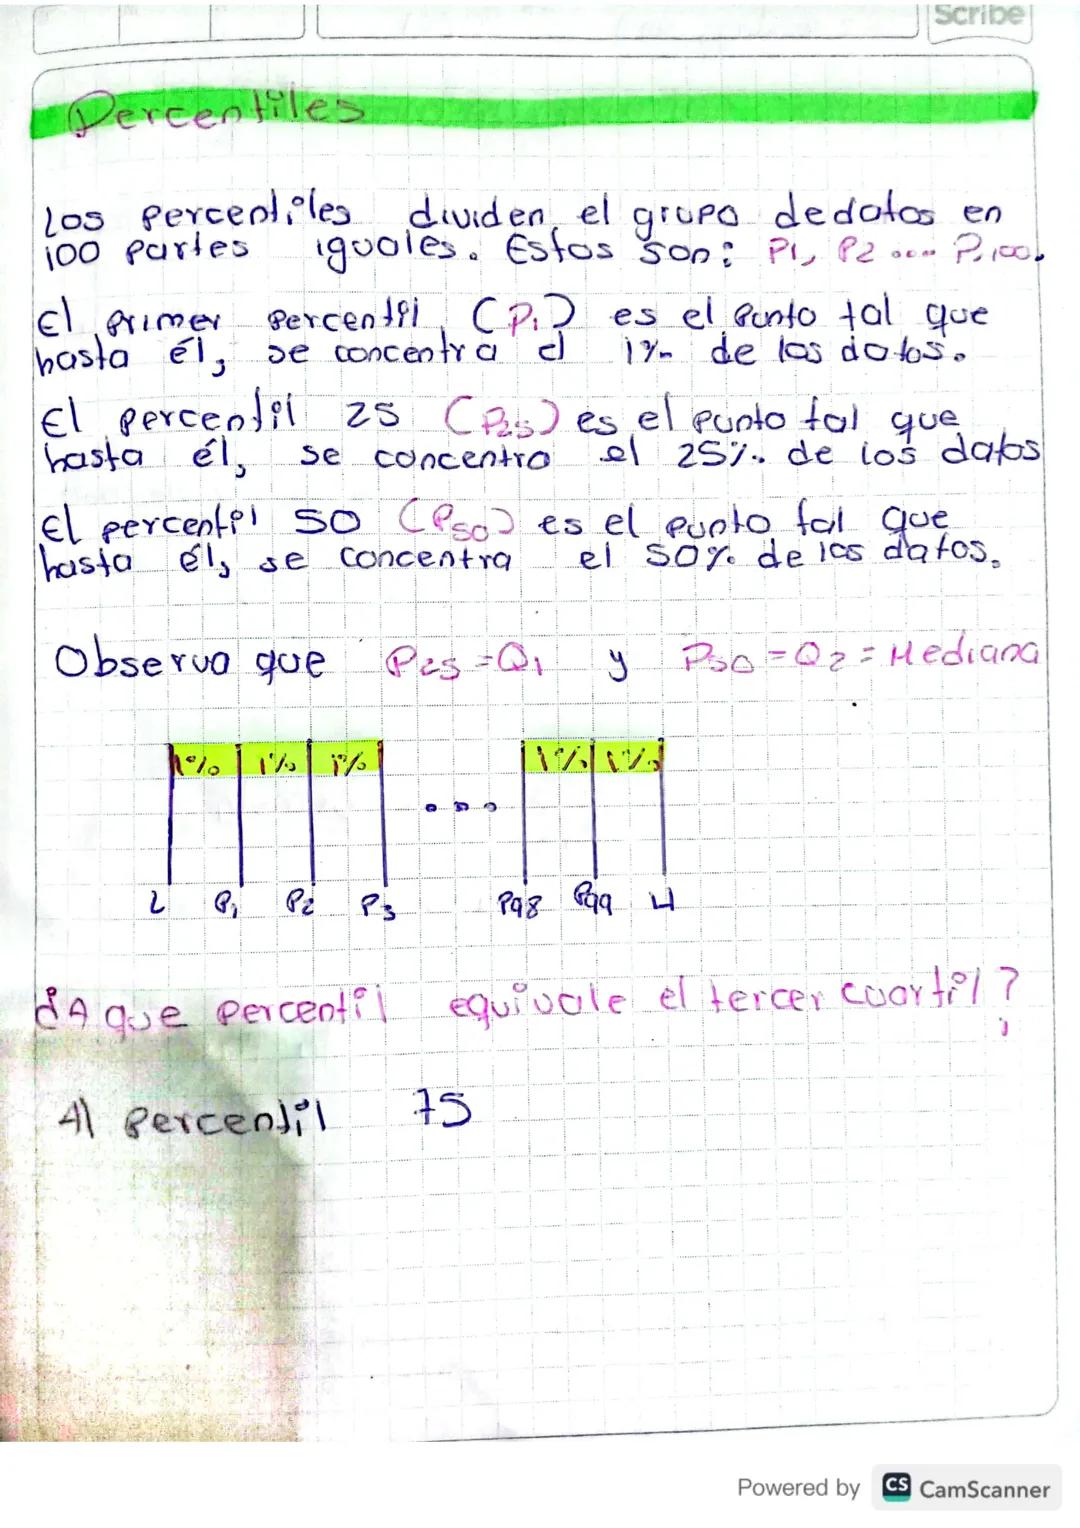 Scribe
Percentiles
Los percentiles dividen el grupo de datos en
100 partes iguales. Estos son: P1, P2 .... P100.
El primer percentil (P1) es el punto tal que
hasta él, se concentra el 1% de los datos.
El percentil 25 (P25) es el punto tal que
hasta él, se concentra el 25% de los datos
El percentil 50 (P50) es el punto tal que
hasta él, se concentra el 50% de los datos.
Observa que P25 = Q1 y P50 = Q2 = Mediana
1% 1% 1% ... 1% 1%
L P1 P2 P3 P98 P99 H
¿A que percentil equivale el tercer cuartil?
Al percentil 75
Powered by CS CamScanner